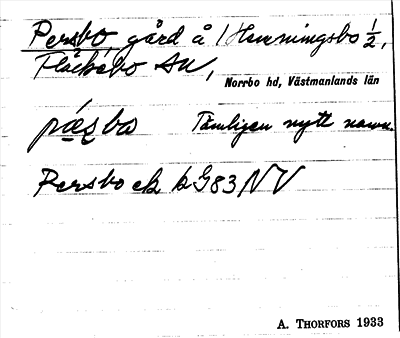 Persbo gård å 1 Henningsbo ½,
Fläckebo sn,
Norrbo hd, Västmanlands län
pæṣbo Tämligen nytt namn.
Persbo ek bG83 NV
A. THORFORS 1933